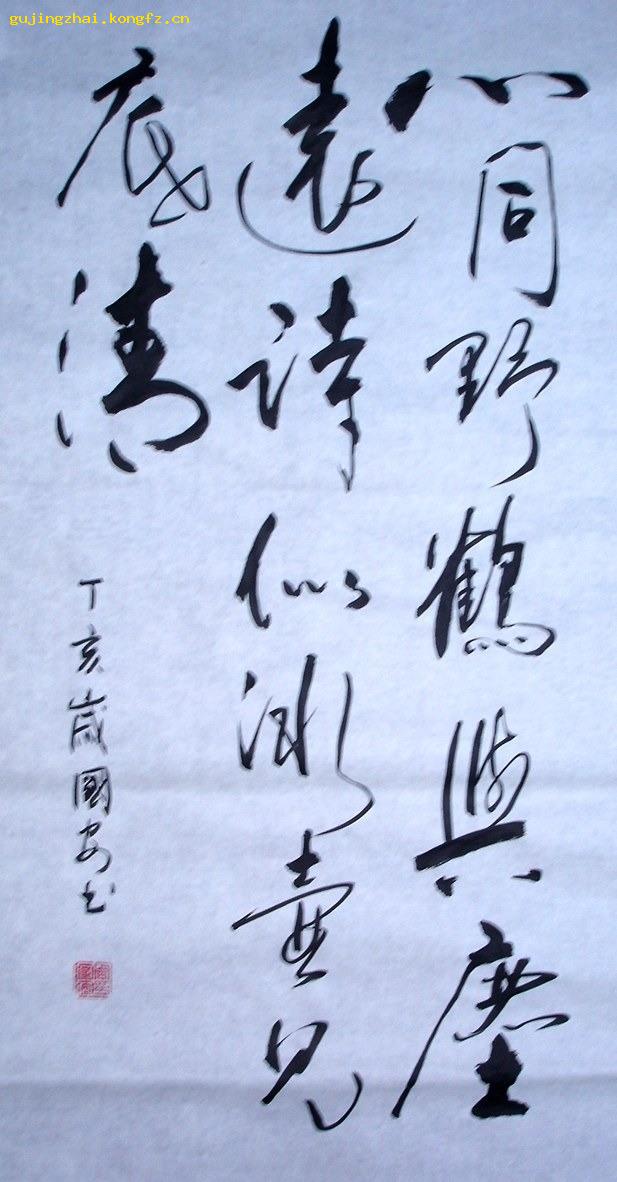 gujingzhai.kongfz.cn
心同野鶴與塵
遠詩似冰壺見
底清
丁亥歲國安书